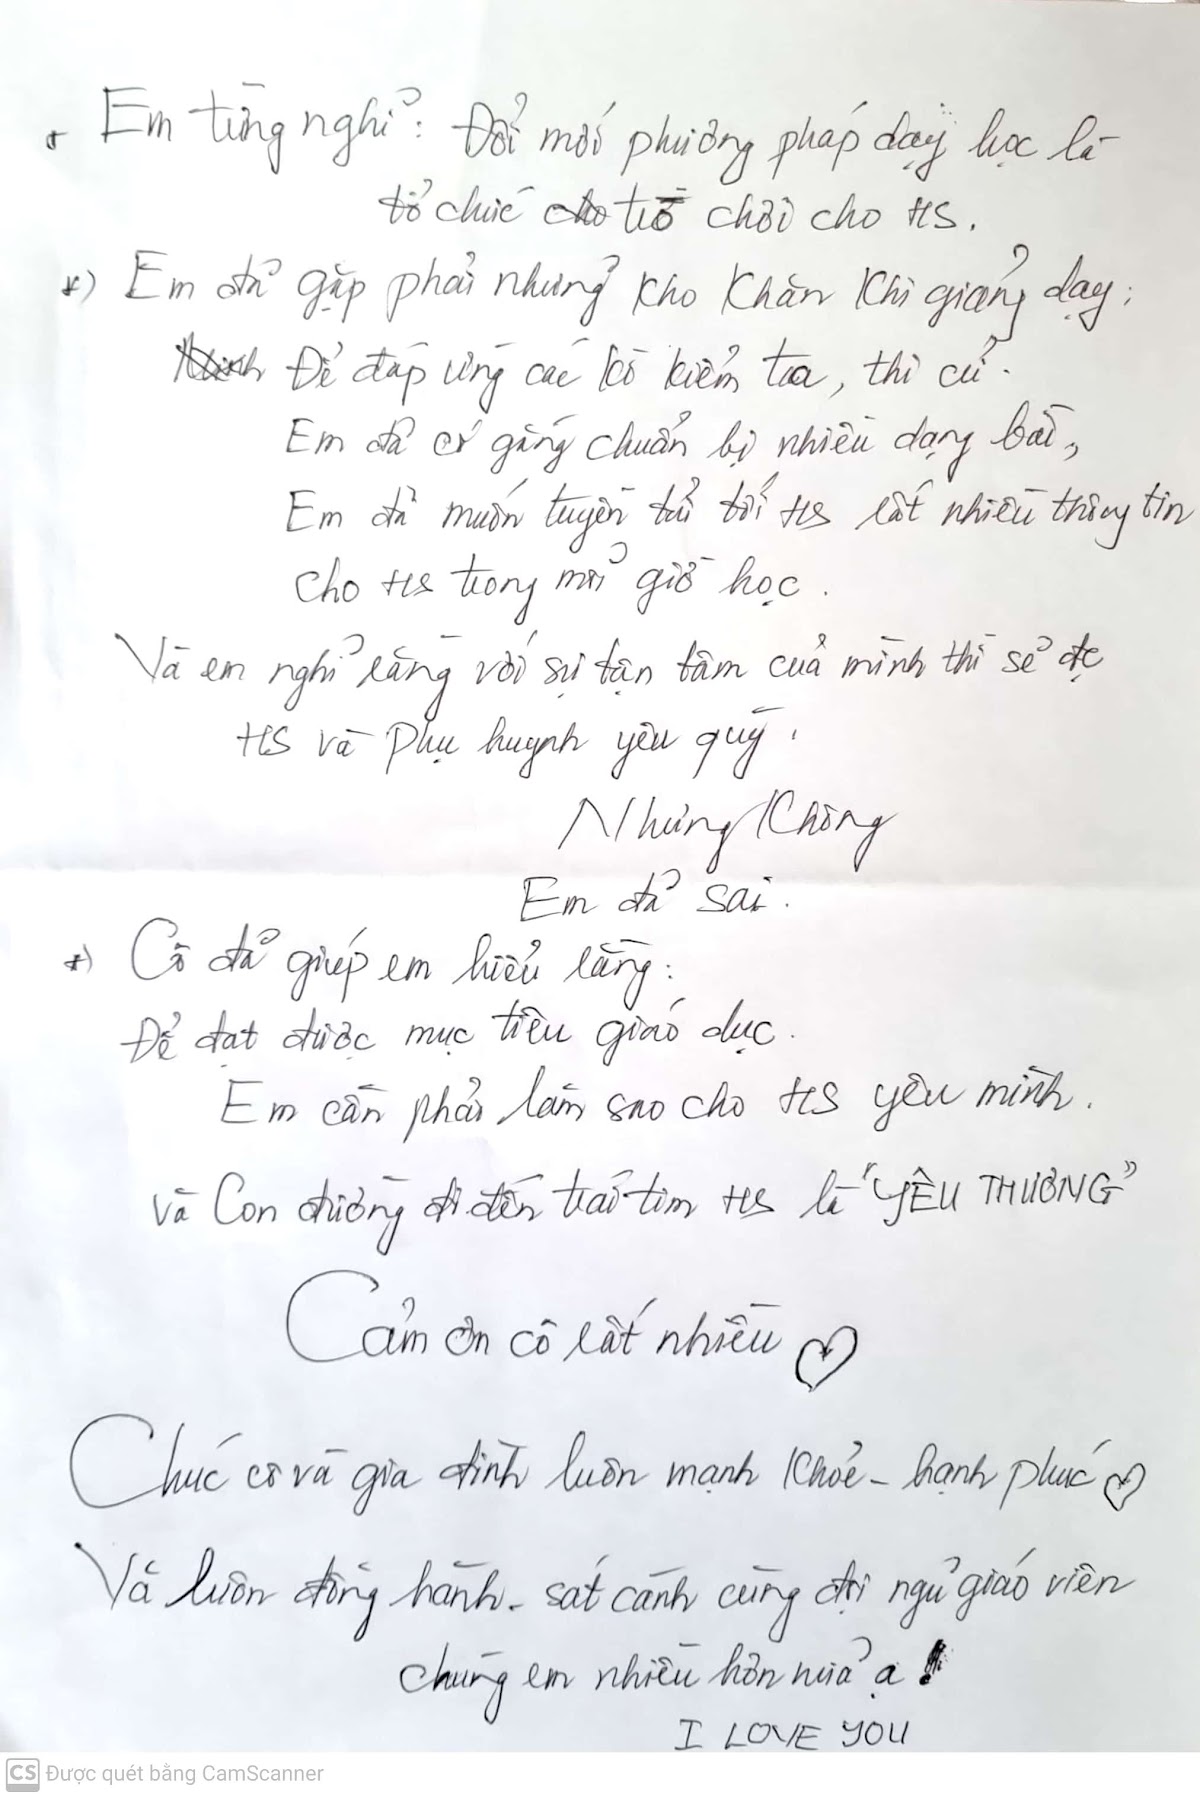 * Em từng nghỉ: Đổi mới phương pháp dạy học là
tổ chức trò chơi cho HS.
*) Em đả gặp phải nhưng kho khăn khi giảng dạy:
Để đáp ứng các kì kiểm tra, thi cử.
Em đả cố gắng chuẩn bị nhiều dạng bài,
Em đả muốn truyền tải tới HS rất nhiều thông tin
cho HS trong mỗi giờ học.
Và em nghỉ rằng với sự tận tâm của mình thì sẻ đc
HS và phụ huynh yêu quý.
Nhưng Không
Em đả sai.
*) Cô đả giúp em hiểu rằng:
Để đạt được mục tiêu giáo dục.
Em cần phải làm sao cho HS yêu mình.
và Con đường đi đến trái tim HS là "YÊU THƯƠNG"
Cảm ơn cô rất nhiều
Chúc cô và gia đình luôn mạnh khỏe - hạnh phúc
Và luôn đồng hành - sát cánh cùng đội ngủ giáo viên
chúng em nhiều hơn nửa ạ!
I LOVE YOU
CS Được quét bằng CamScanner